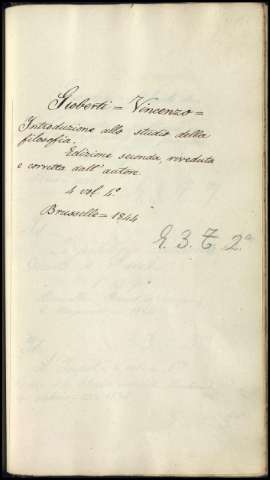 Gioberti = Vincenzo =
Introduzione allo studio della
filosofia.
Edizione seconda, riveduta
e corretta dall' autore
4 vol. 4°
Brusselle = 1844
3. 2ª